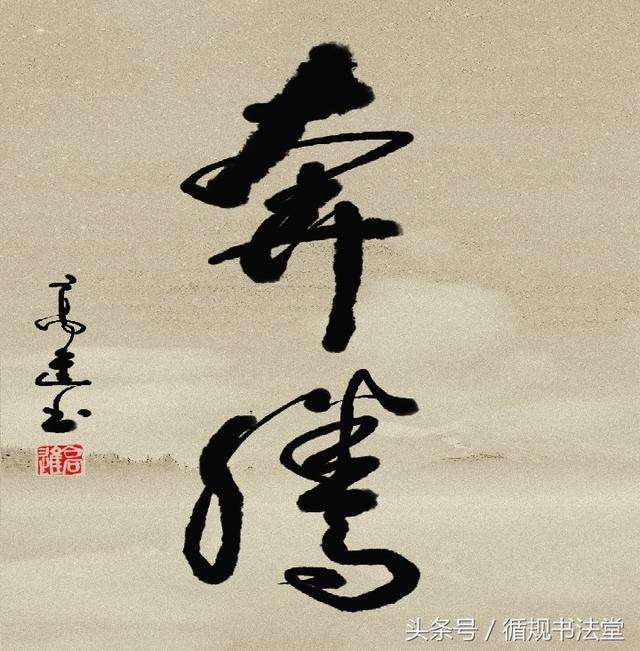 奔腾
高進书
高進
头条号 / 循规书法堂